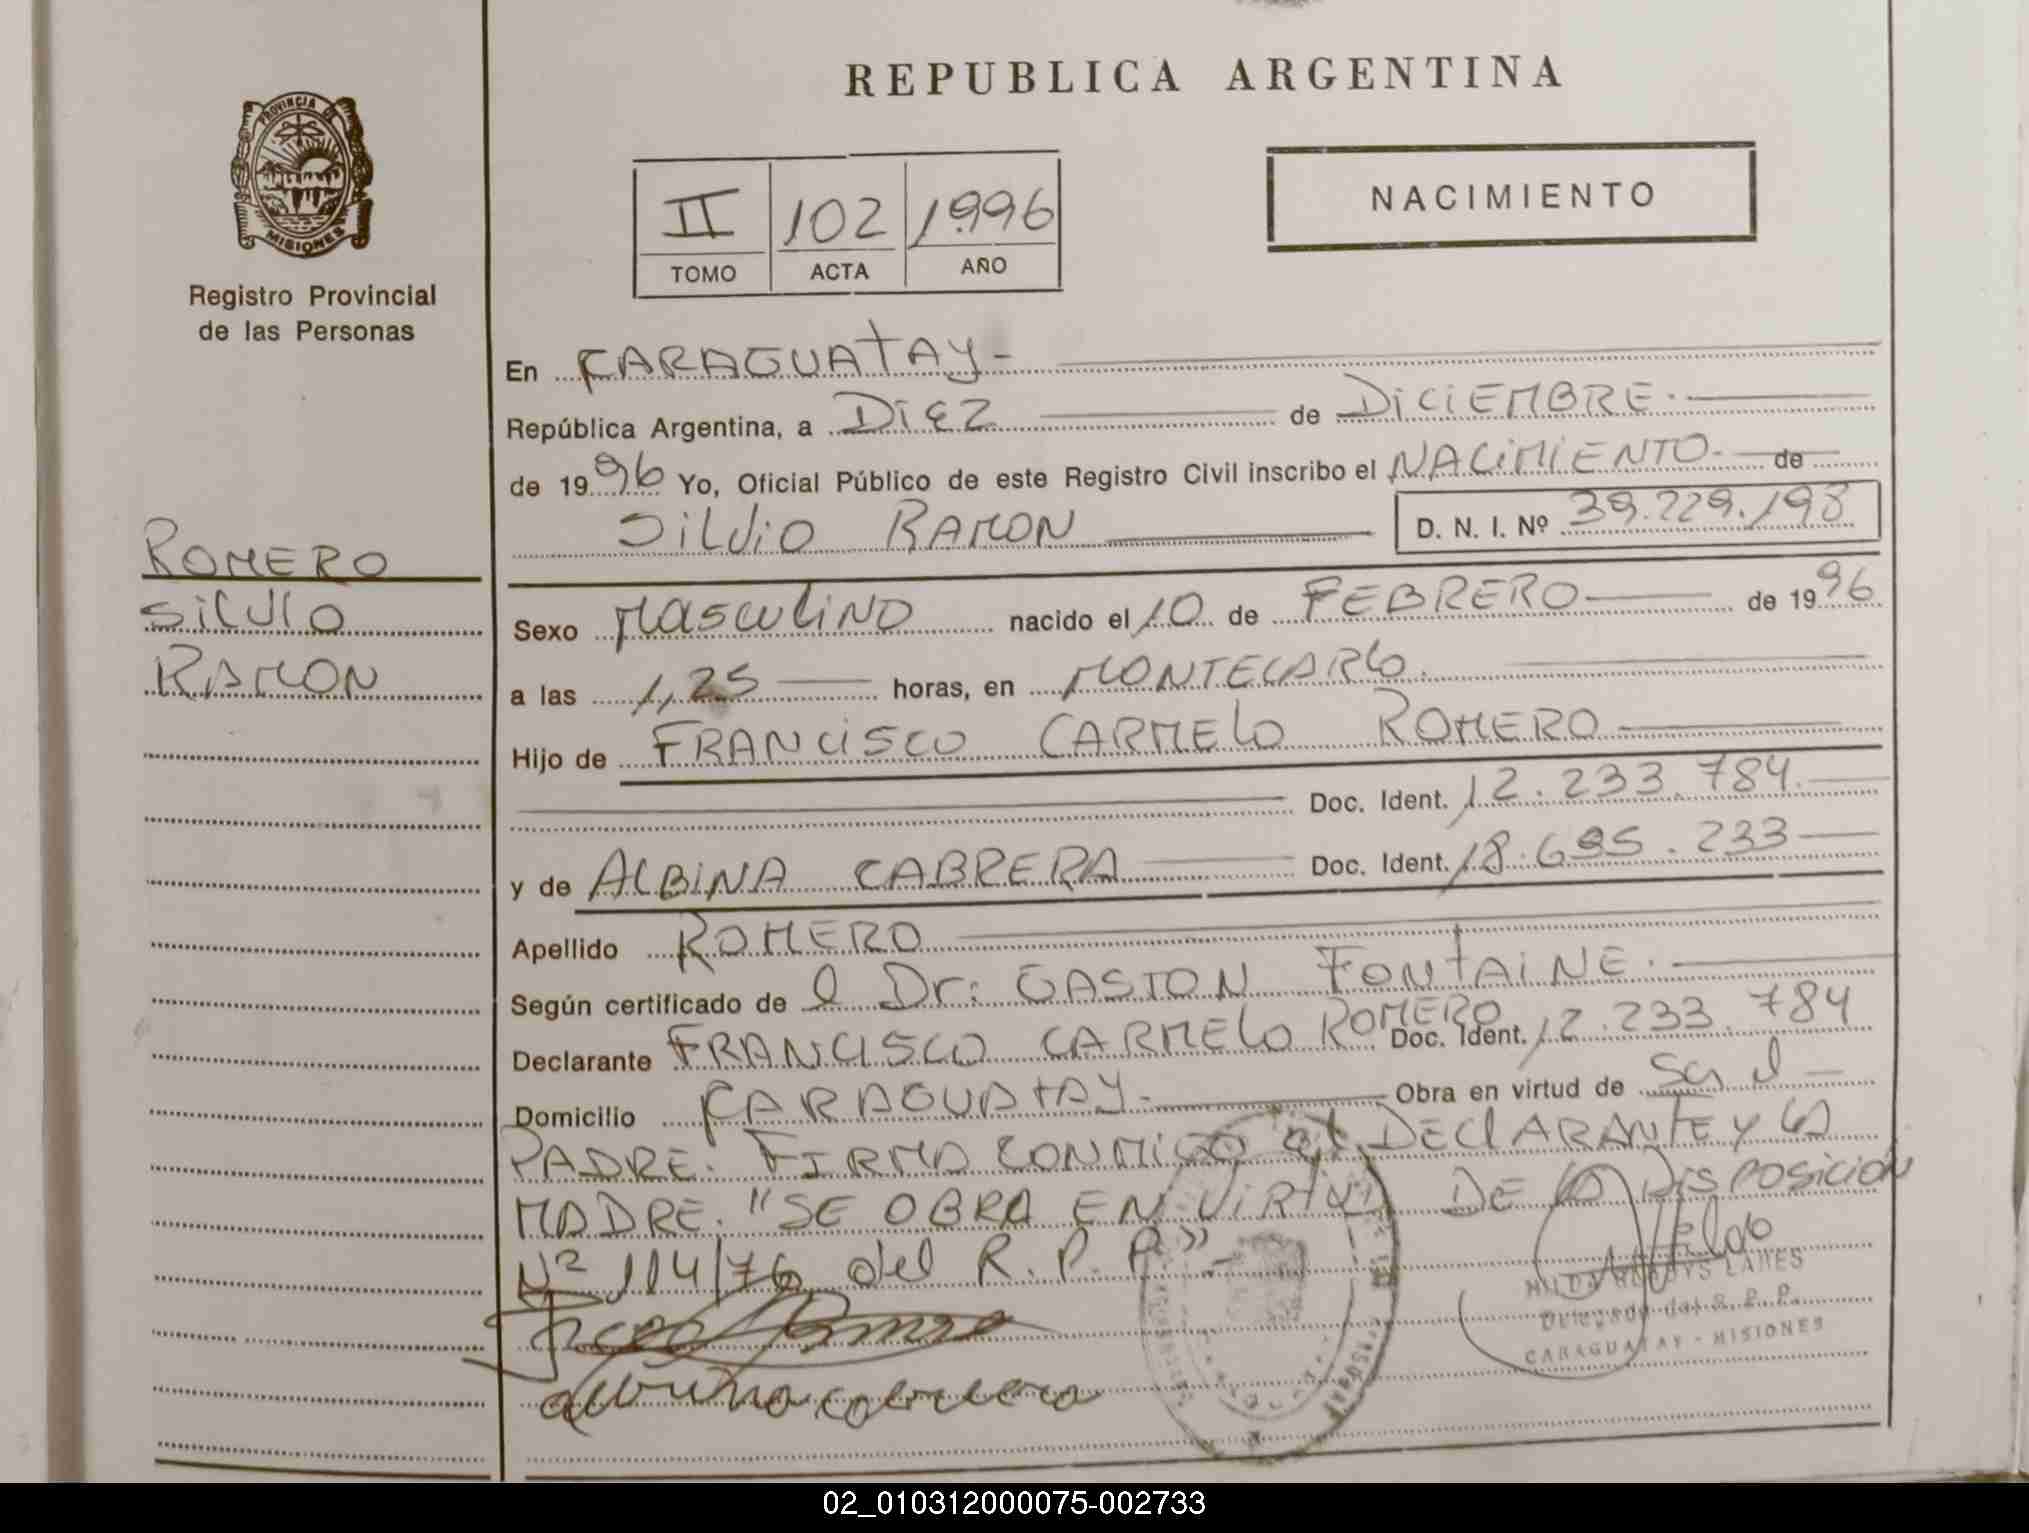 REPUBLICA ARGENTINA
PROVINCIA DE
MISIONES
Registro Provincial
de las Personas
II 102 1.996
TOMO ACTA AÑO
NACIMIENTO
En CARAGUATAY-
República Argentina, a DiEZ de DiCiEMBRE.
de 1996 Yo, Oficial Público de este Registro Civil inscribo el NACiMiENTO. de
SiLViO RAMON D. N. I. Nº 39.229.198
ROMERO
SiLViO
RAMON
Sexo MASCULiNO nacido el 10 de FEBRERO de 1996
a las 1,25 horas, en MONTECARLO.
Hijo de FRANCiSCO CARMELO ROMERO
Doc. Ident. 12.233.784.
y de ALBiNA CABRERA Doc. Ident. 18.695.233
Apellido ROMERO
Según certificado de l Dr: GASTON FONTAiNE.
Declarante FRANCiSCO CARMELO ROMERO Doc. Ident. 12.233.784
Domicilio CARAGUATAY- Obra en virtud de Ser el
PADRE. FIRMA CONMIGO el DEClARANTE y LA
MADRE. "SE OBRA EN ViRTUD DE LA DiSPOSiCIÓN
Nº 114/76 del R. P. P."-
albina cabrera
GLADYS
Delegada del R. P. P.
CARAGUATAY - MISIONES
02_010312000075-002733